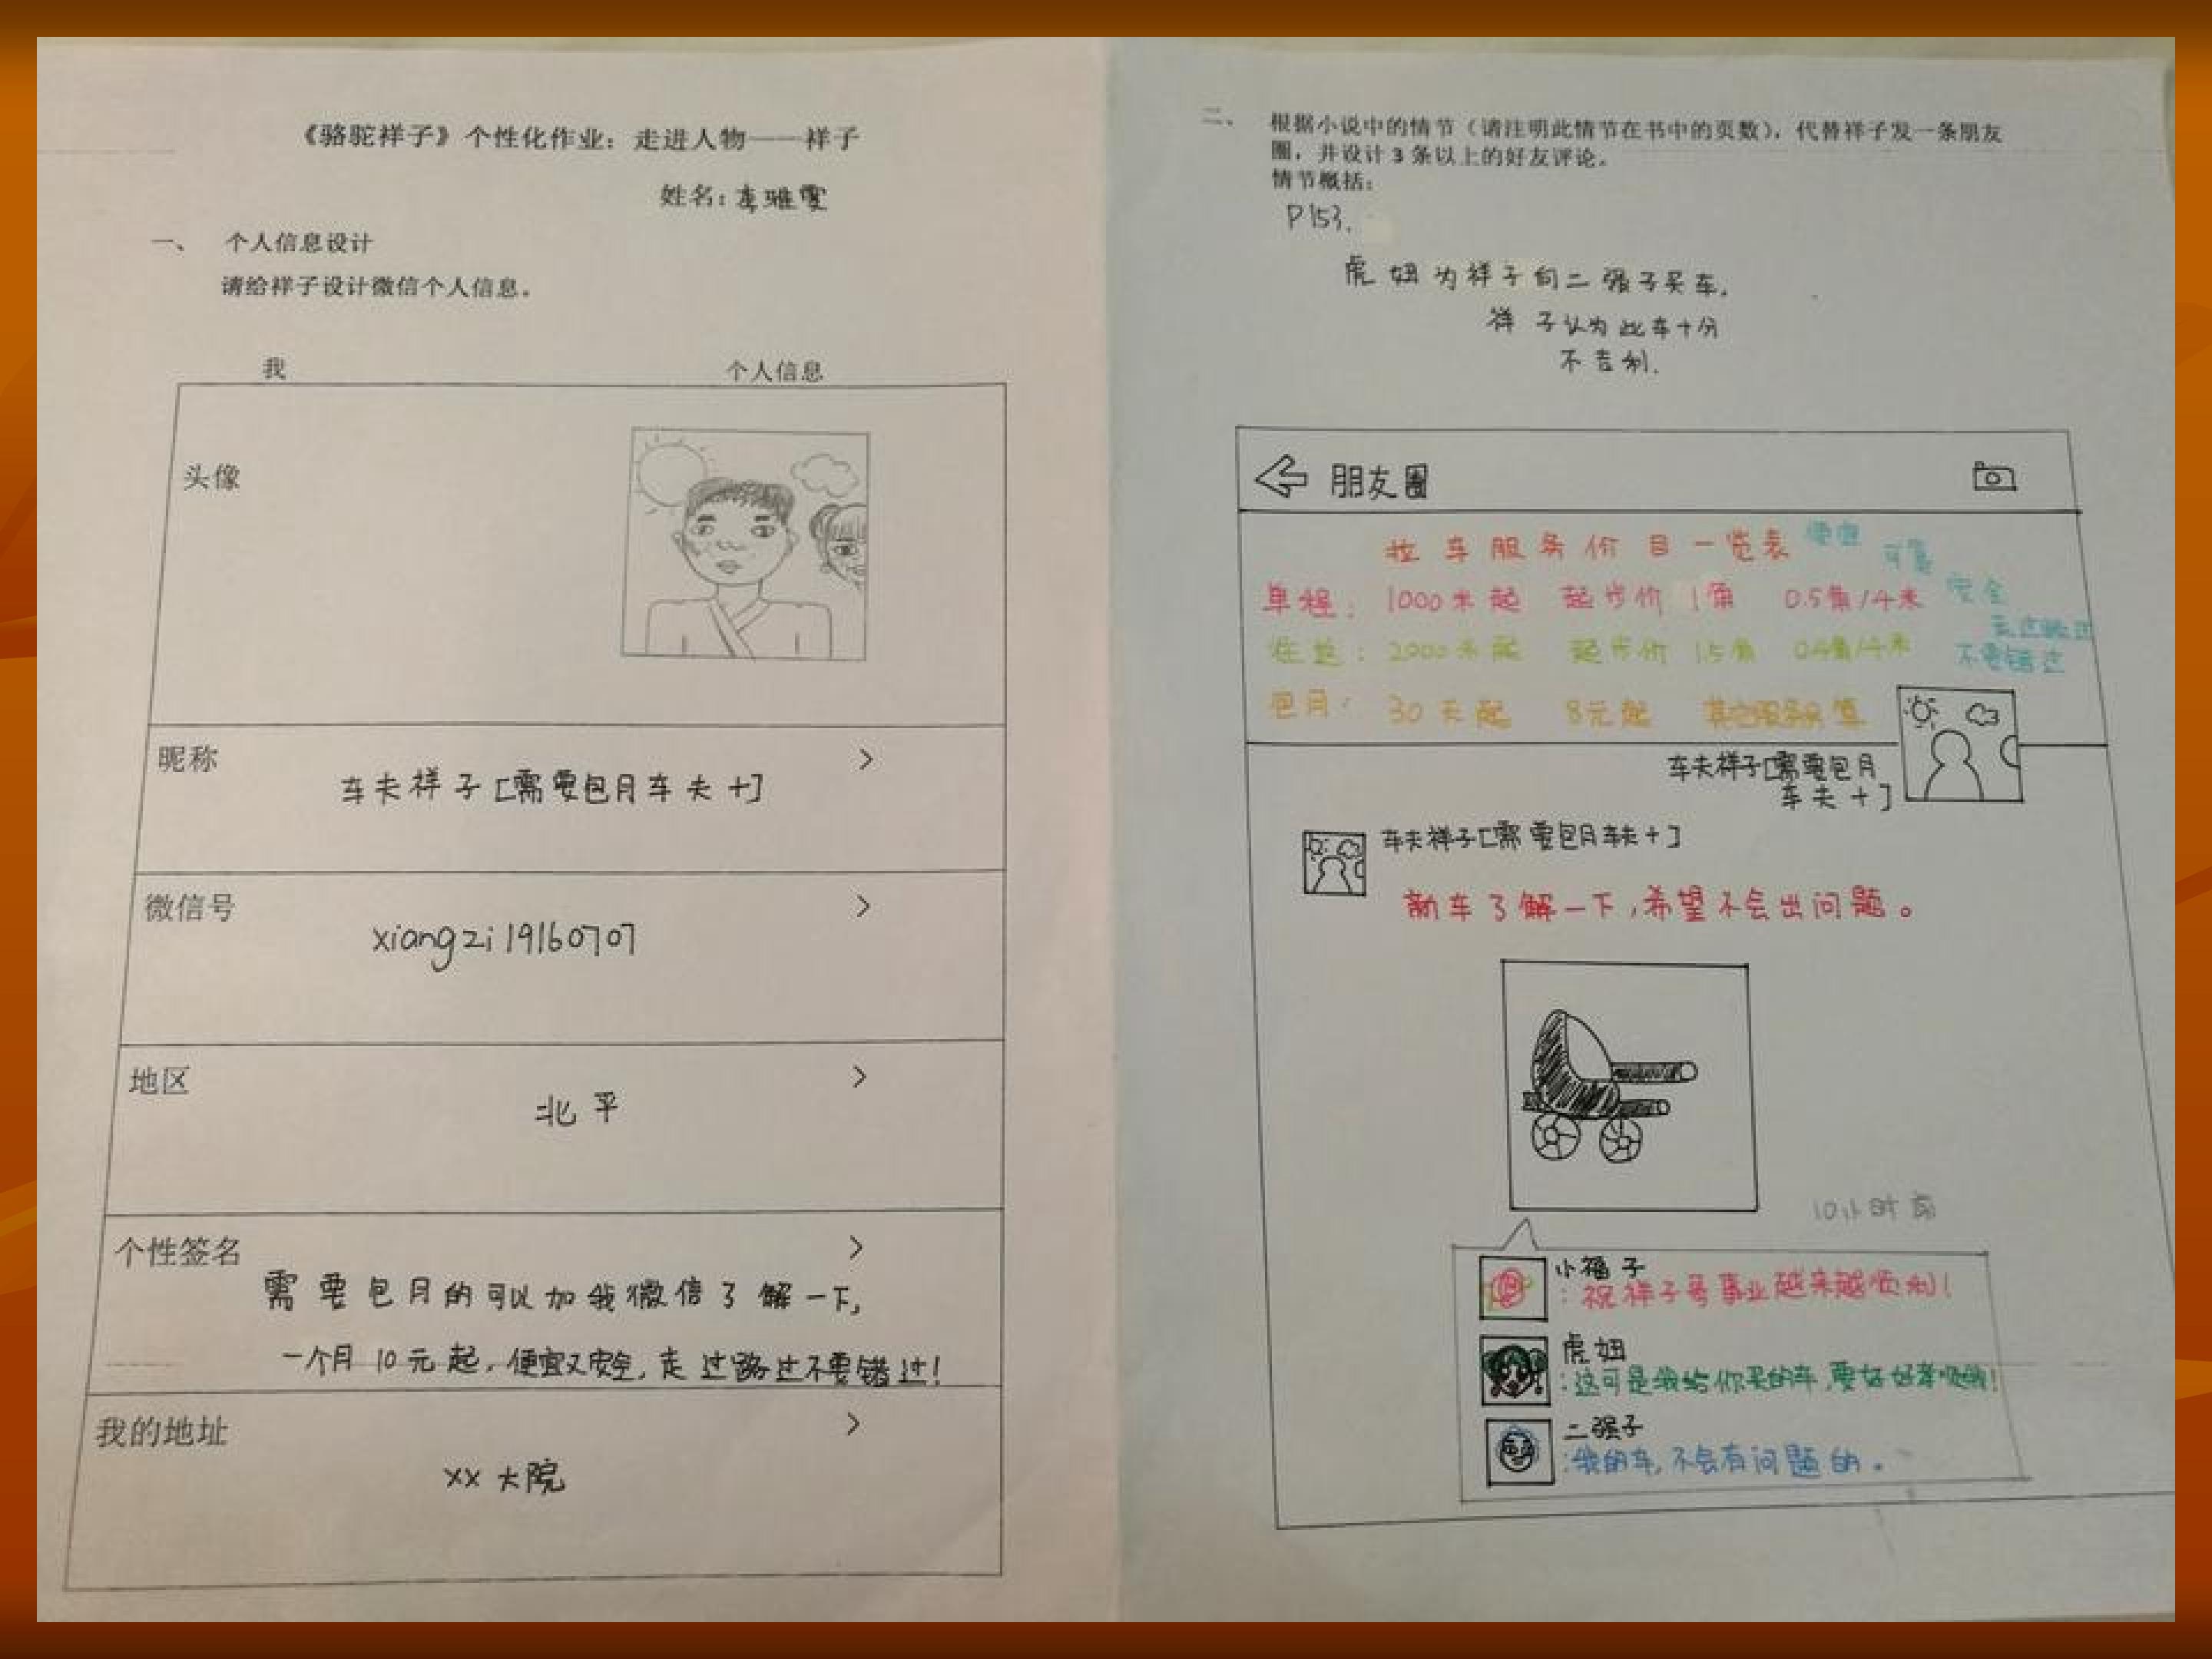 《骆驼祥子》个性化作业：走进人物——祥子
姓名：李雅雯
一、 个人信息设计
请给祥子设计微信个人信息。
我 个人信息
头像
昵称 >
车夫祥子[需要包月车夫+]
微信号 >
xiangzi19160707
地区 >
北平
个性签名 >
需要包月的可以加我微信了解一下,
一个月10元起,便宜又安全,走过路过不要错过!
我的地址 >
xx大院
二、 根据小说中的情节（请注明此情节在书中的页数），代替祥子发一条朋友
圈，并设计3条以上的好友评论。
情节概括：
P153.
虎妞为祥子向二强子买车,
祥子认为此车十分
不吉利.
朋友圈
拉车服务价目一览表 便宜
可靠
单程: 1000米起 起步价 1角 0.5角/千米 安全
往返: 2000米起 起步价 1.5角 0.4角/千米 走过路过
不要错过
包月: 30天起 8元起
车夫祥子[需要包月
车夫+]
车夫祥子[需要包月车夫+]
新车了解一下,希望不会出问题。
10小时前
小福子
:祝祥子哥事业越来越顺利!
虎妞
:这可是我给你买的车,要好好孝顺我!
二强子
:我的车,不会有问题的。